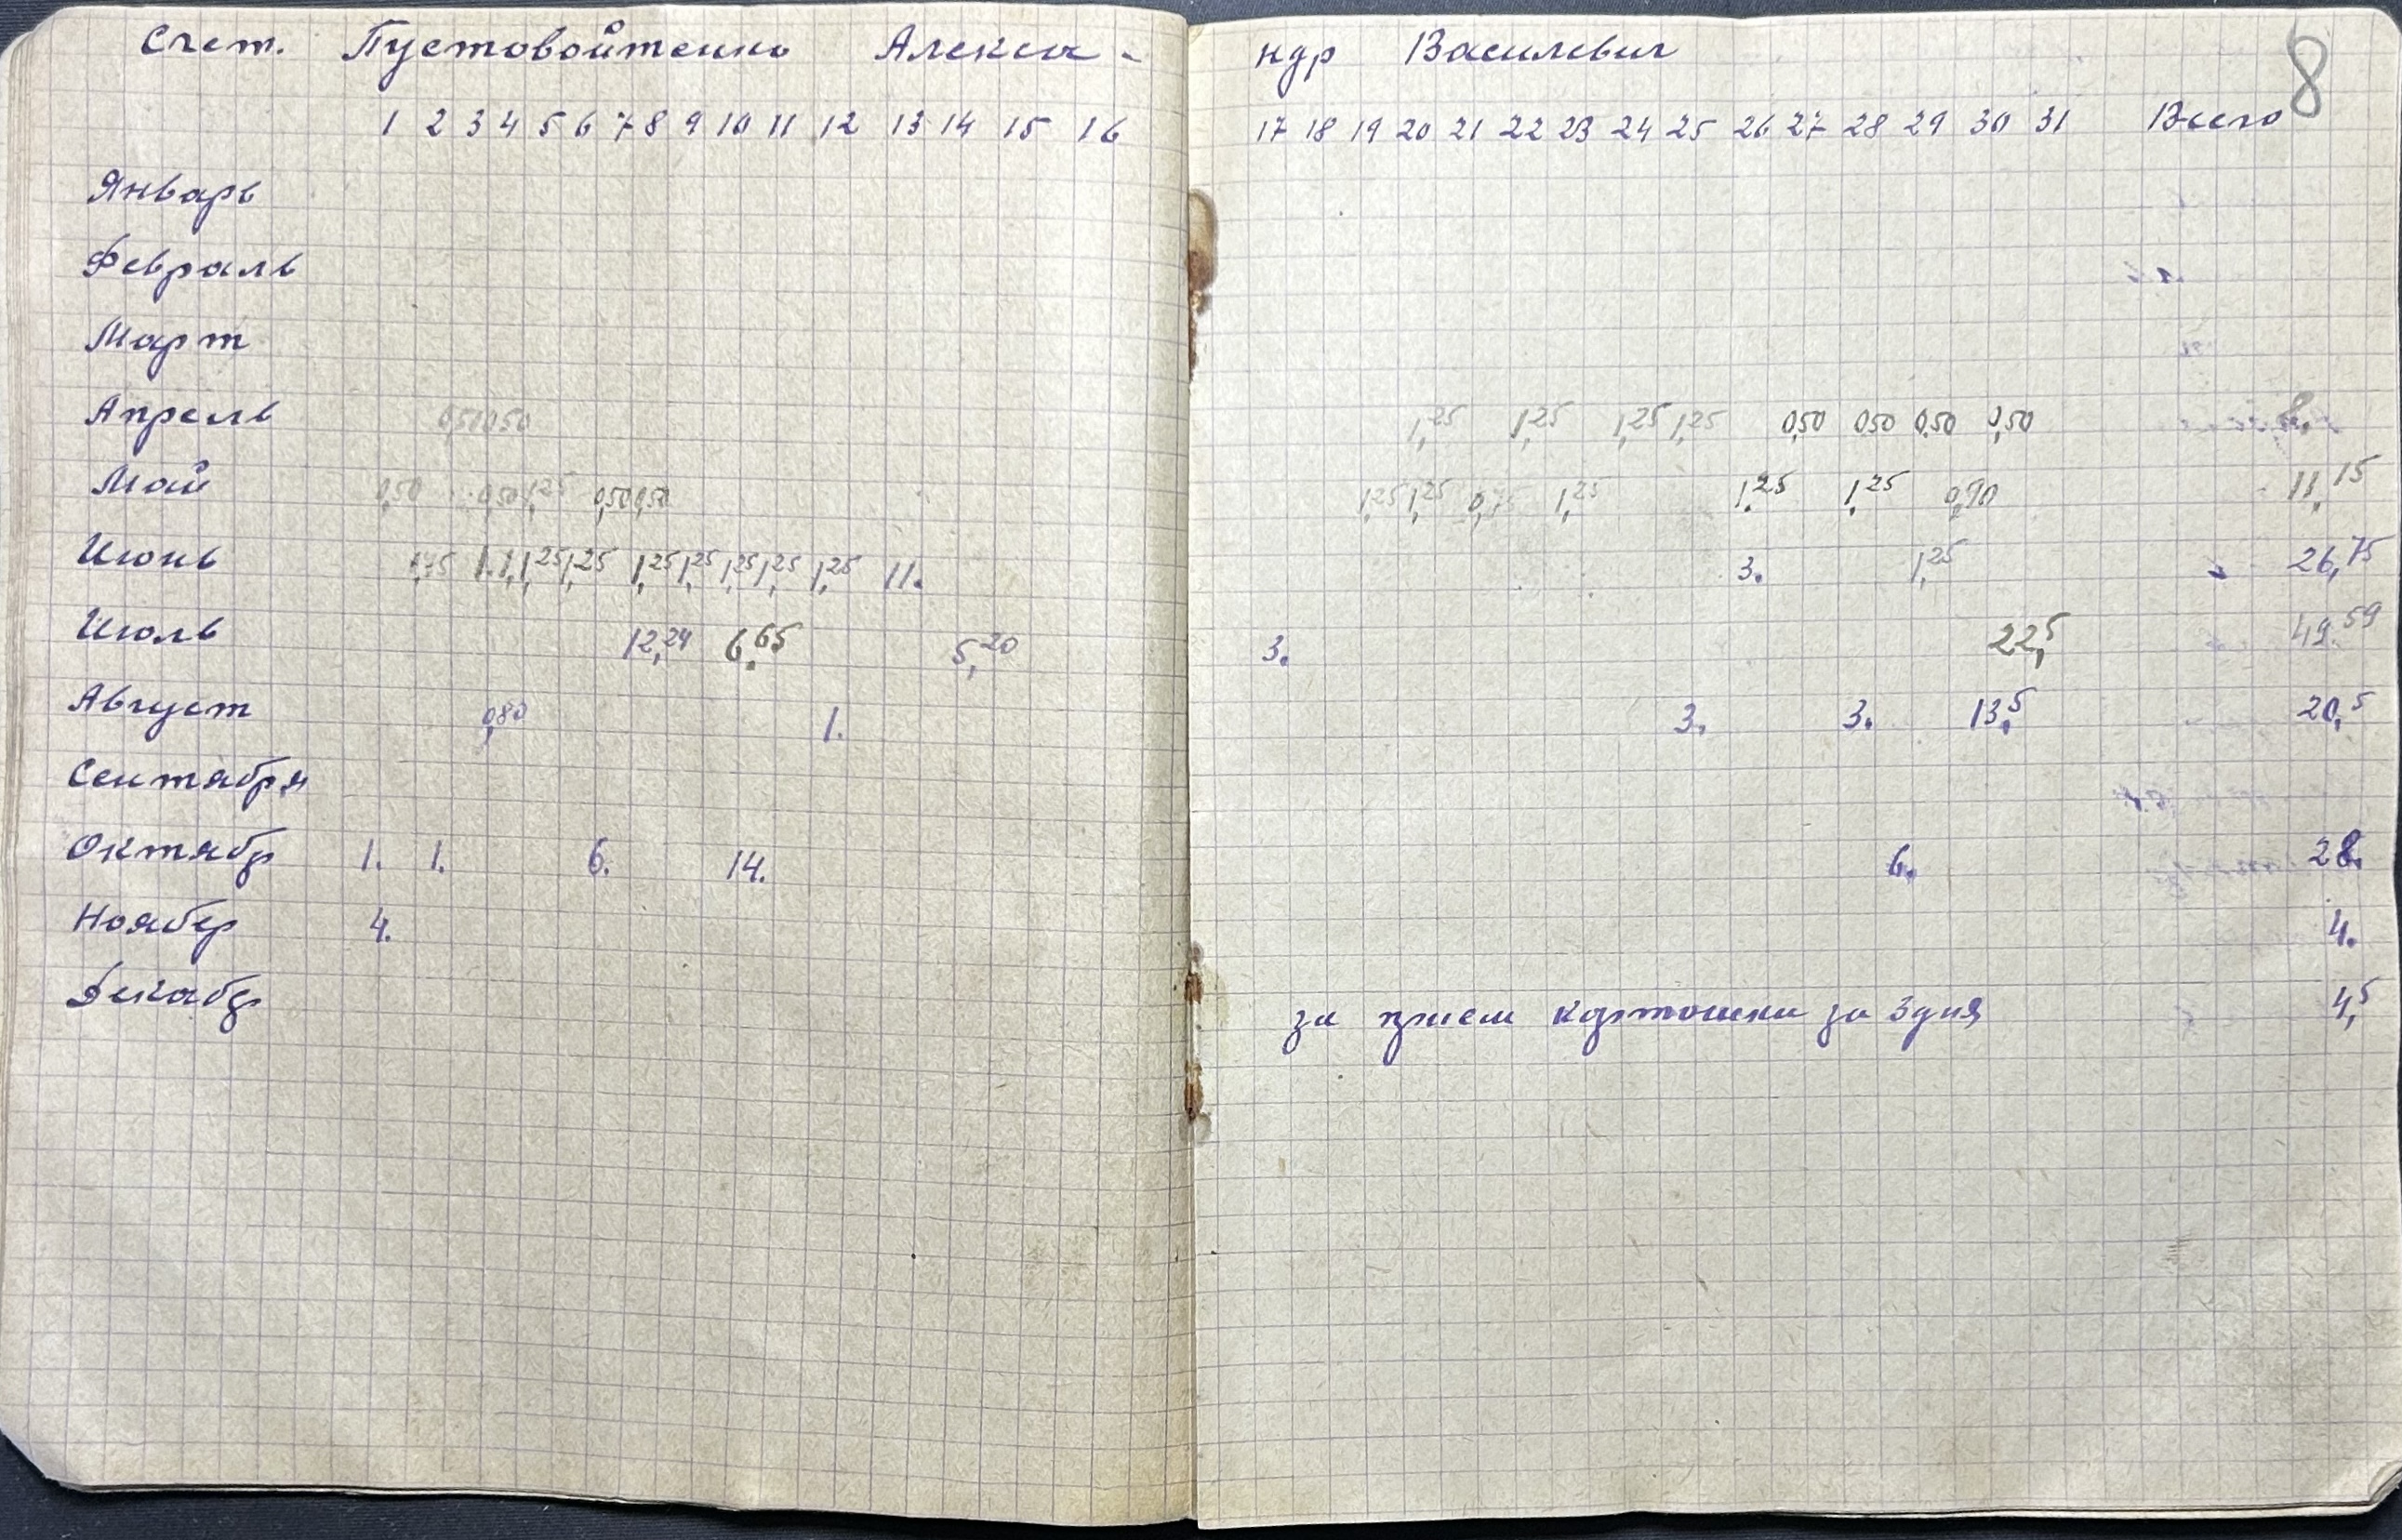 Счет. Пустовойтенко Алекса- ндр Василевич 8
1 2 3 4 5 6 7 8 9 10 11 12 13 14 15 16 17 18 19 20 21 22 23 24 25 26 27 28 29 30 31 Всего
Январь
Февраль
Март
Апрель 0,50 0,50 1,25 1,25 1,25 1,25 0,50 0,50 0,50 0,50
Май 0,50 0,50 1,25 0,50 0,50 1,25 1,25 1,25 1,25 1,25 0,90 11,15
Июнь 1,75 1. 1. 1,25 1,25 1,25 1,25 1,25 1,25 1,25 11. 3. 1,25 26,75
Июль 12,24 6,65 5,20 3. 22,5 49,59
Август 0,80 1. 3. 3. 13,5 20,5
Сентября
Октябр 1. 1. 6. 14. 6. 28.
Ноябер 4. 4.
Декабр за прием картошки за 3 дня 4,5